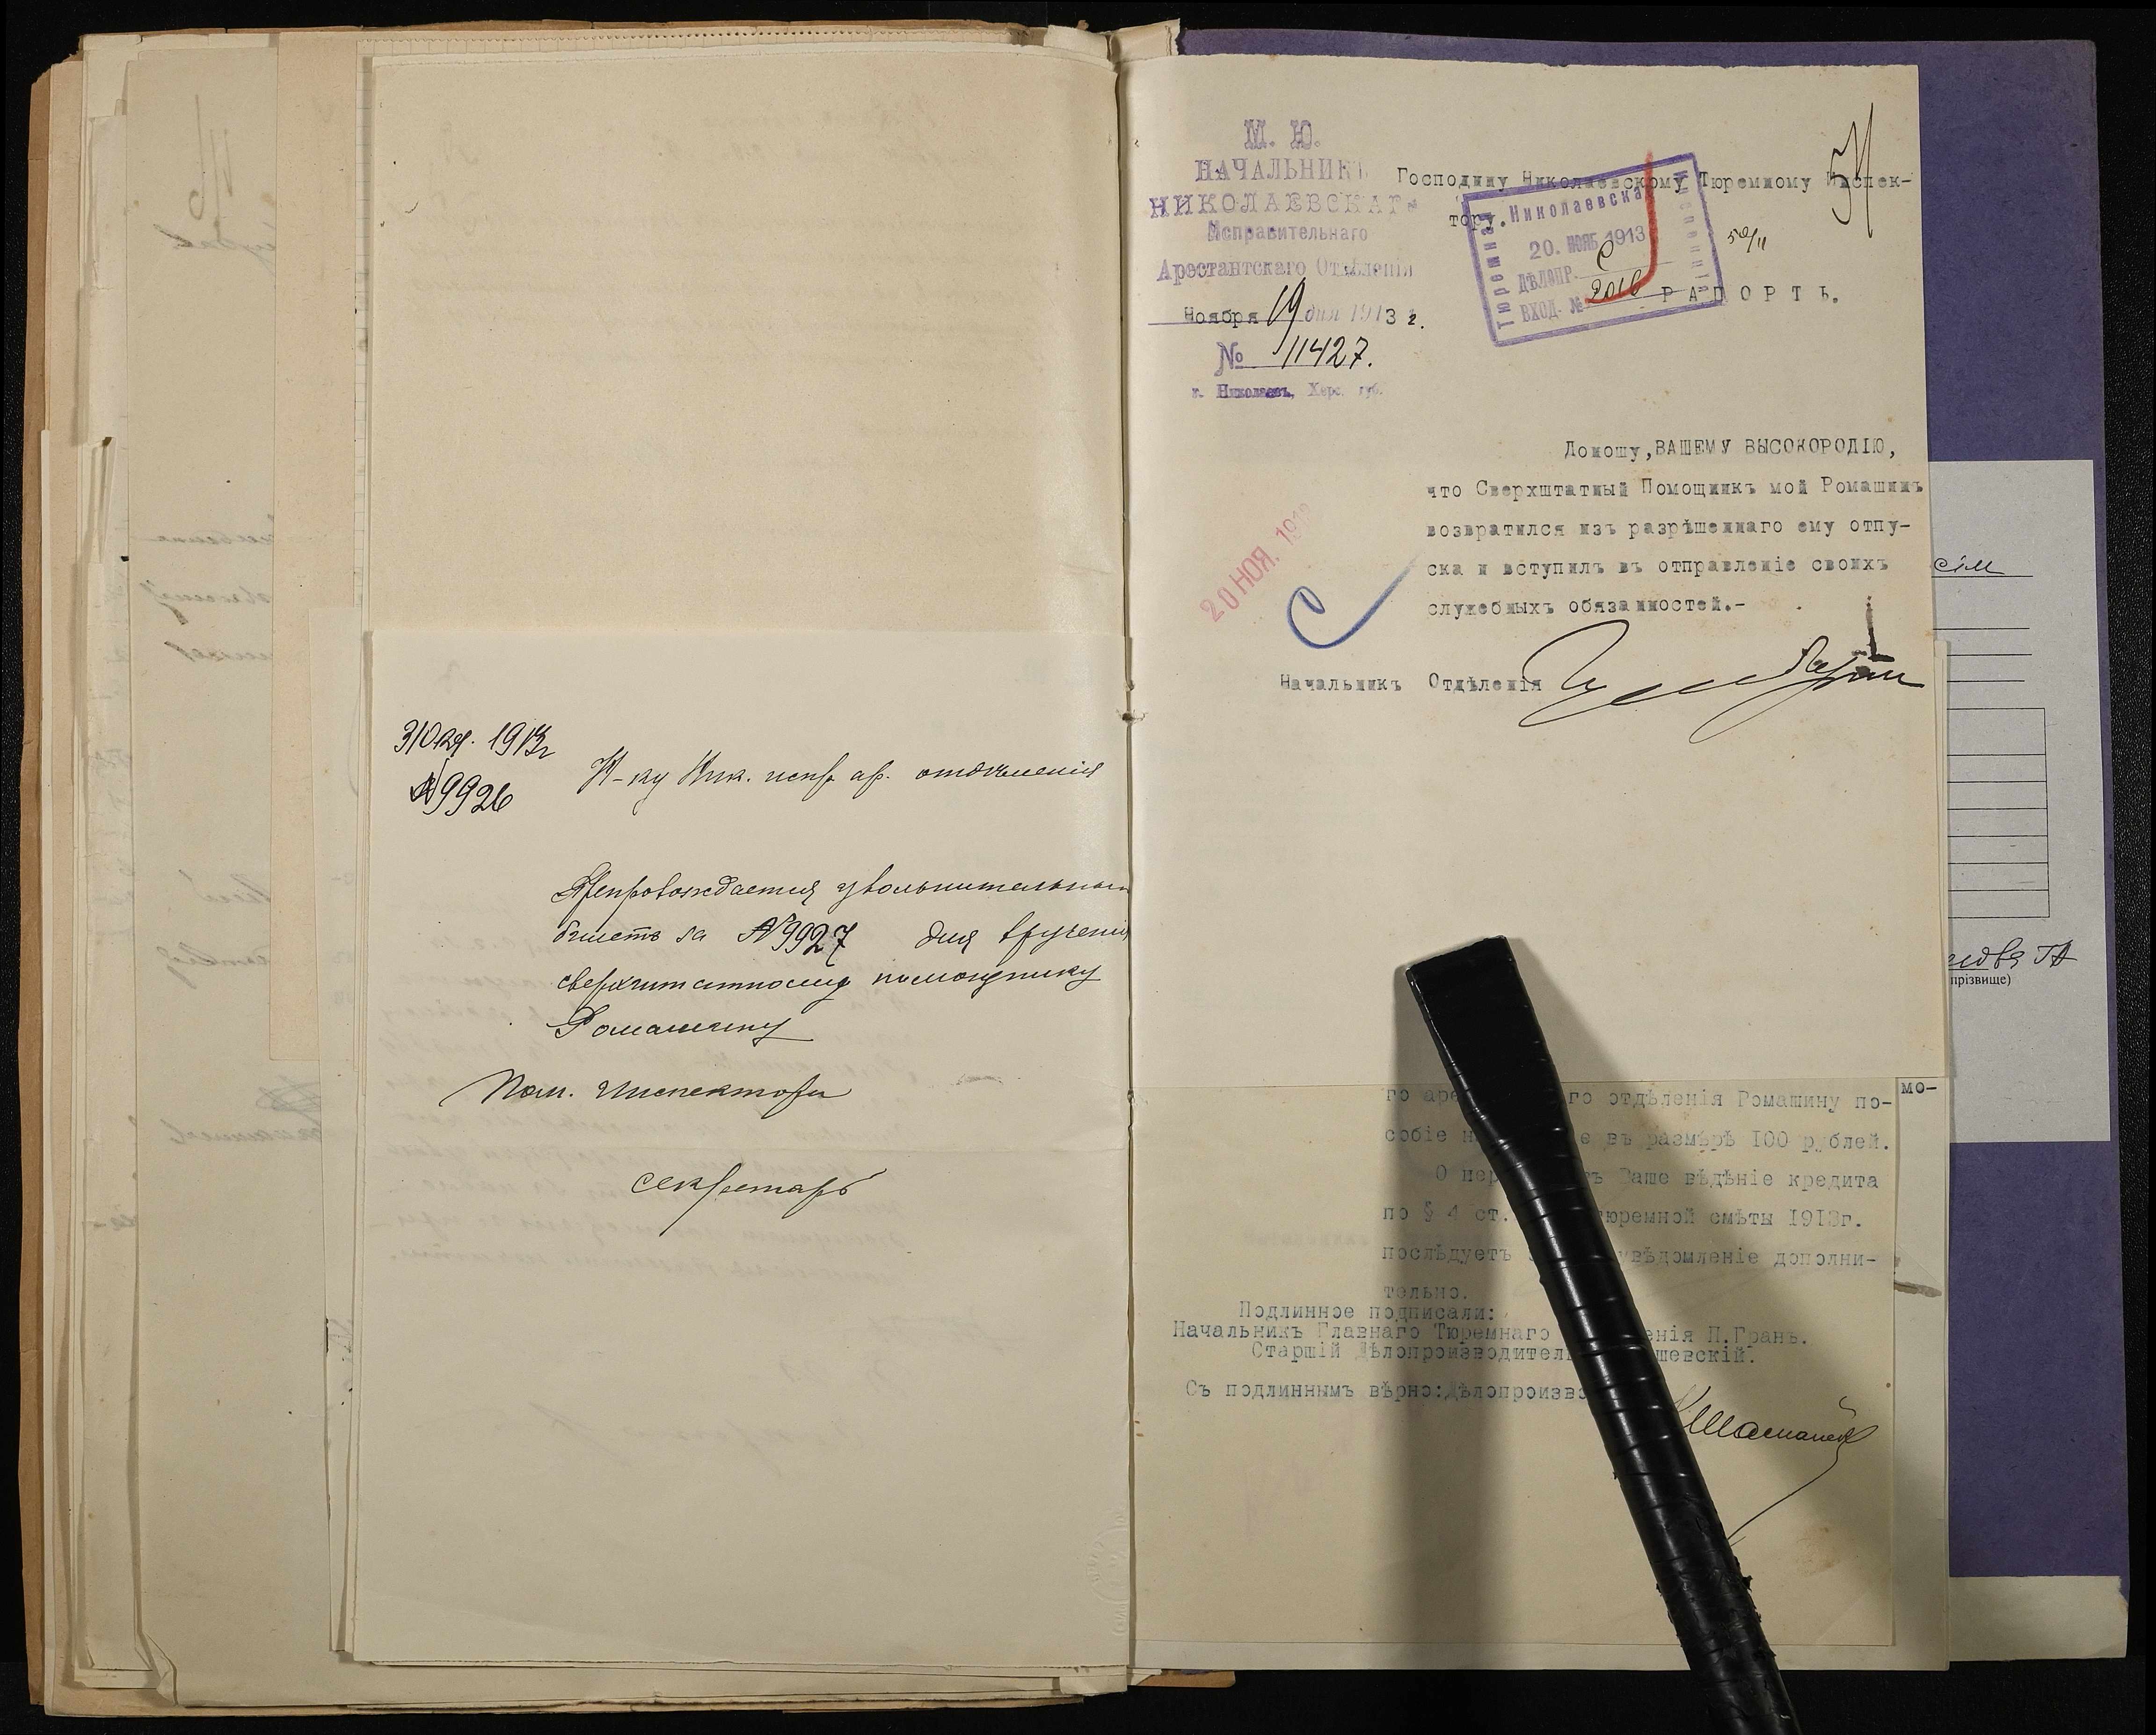 31 Окт. 1913 г
№ 9926
Н-ку Ник. испр. ар. отделенія
Препровождается увольнительный
билетъ за № 9927 для врученія
сверхштатному помощнику
Ромашину
Пом. Инспектора
секретарь
М. Ю.
НАЧАЛЬНИКЪ
НИКОЛАЕВСКАГО
Исправительнаго
Арестантскаго Отдѣленія
Ноября 19 дня 1913 г.
№ 11427.
г. Николаевъ, Херс. губ.
54
Господину Николаевскому Тюремному Инспек-
тору.
Николаевская
Тюремная
Инспекція
20. НОЯБ 1913
ДѢЛОПР. С
ВХОД. № 2016
РАПОРТЪ.
Доношу, ВАШЕМУ ВЫСОКОРОДІЮ,
что Сверхштатный Помощникъ мой Ромашинъ
возвратился изъ разрѣшеннаго ему отпу-
ска и вступилъ въ отправленіе своихъ
служебныхъ обязанностей.-
20 НОЯ. 191
С
Начальникъ Отдѣленія
мо-
го отдѣленія Ромашину по-
собіе въ размѣрѣ 100 рублей.
О Ваше вѣдѣніе кредита
по § 4 ст. тюремной смѣты 1913г.
послѣдуетъ увѣдомленіе дополни-
тельно.
Подлинное подписали:
Начальникъ Главнаго Тюремнаго П.Гранъ.
Старшій
Съ подлиннымъ вѣрно:
прізвище)